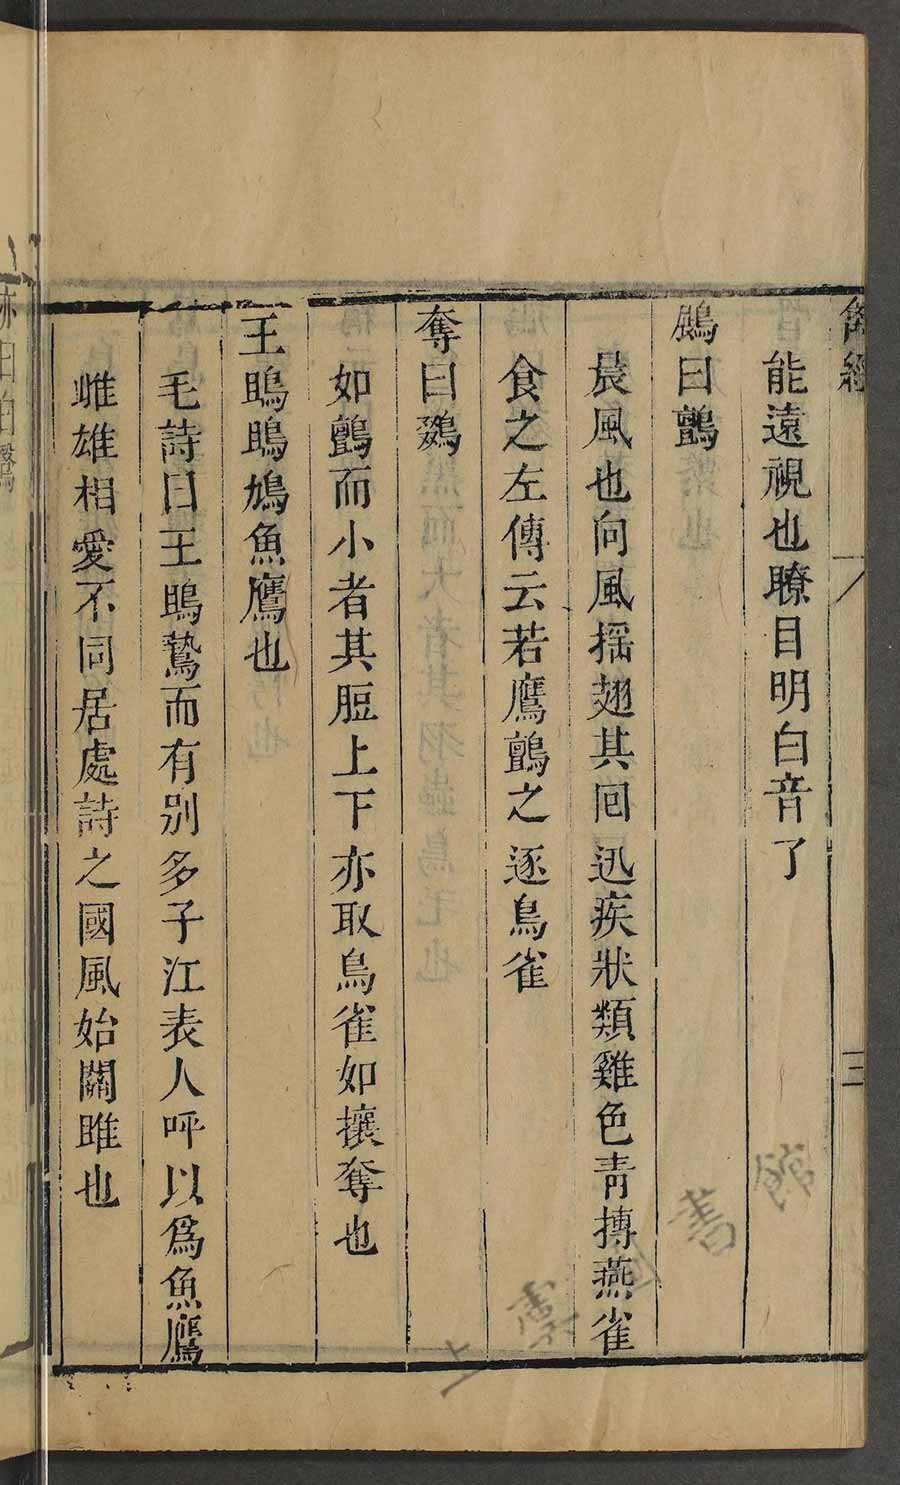 禽經
三
能遠視也瞭目明白音了
鷐曰鸇
晨風也向風摇翅其囘迅疾狀類雞色靑搏燕雀
食之左傳云若鷹鸇之逐鳥雀
奪曰鵽
如鸇而小者其脰上下亦取鳥雀如攘奪也
王鴡鴡鳩魚鷹也
毛詩曰王鴡鷙而有别多子江表人呼以爲魚鷹
雌雄相愛不同居處詩之國風始關雎也